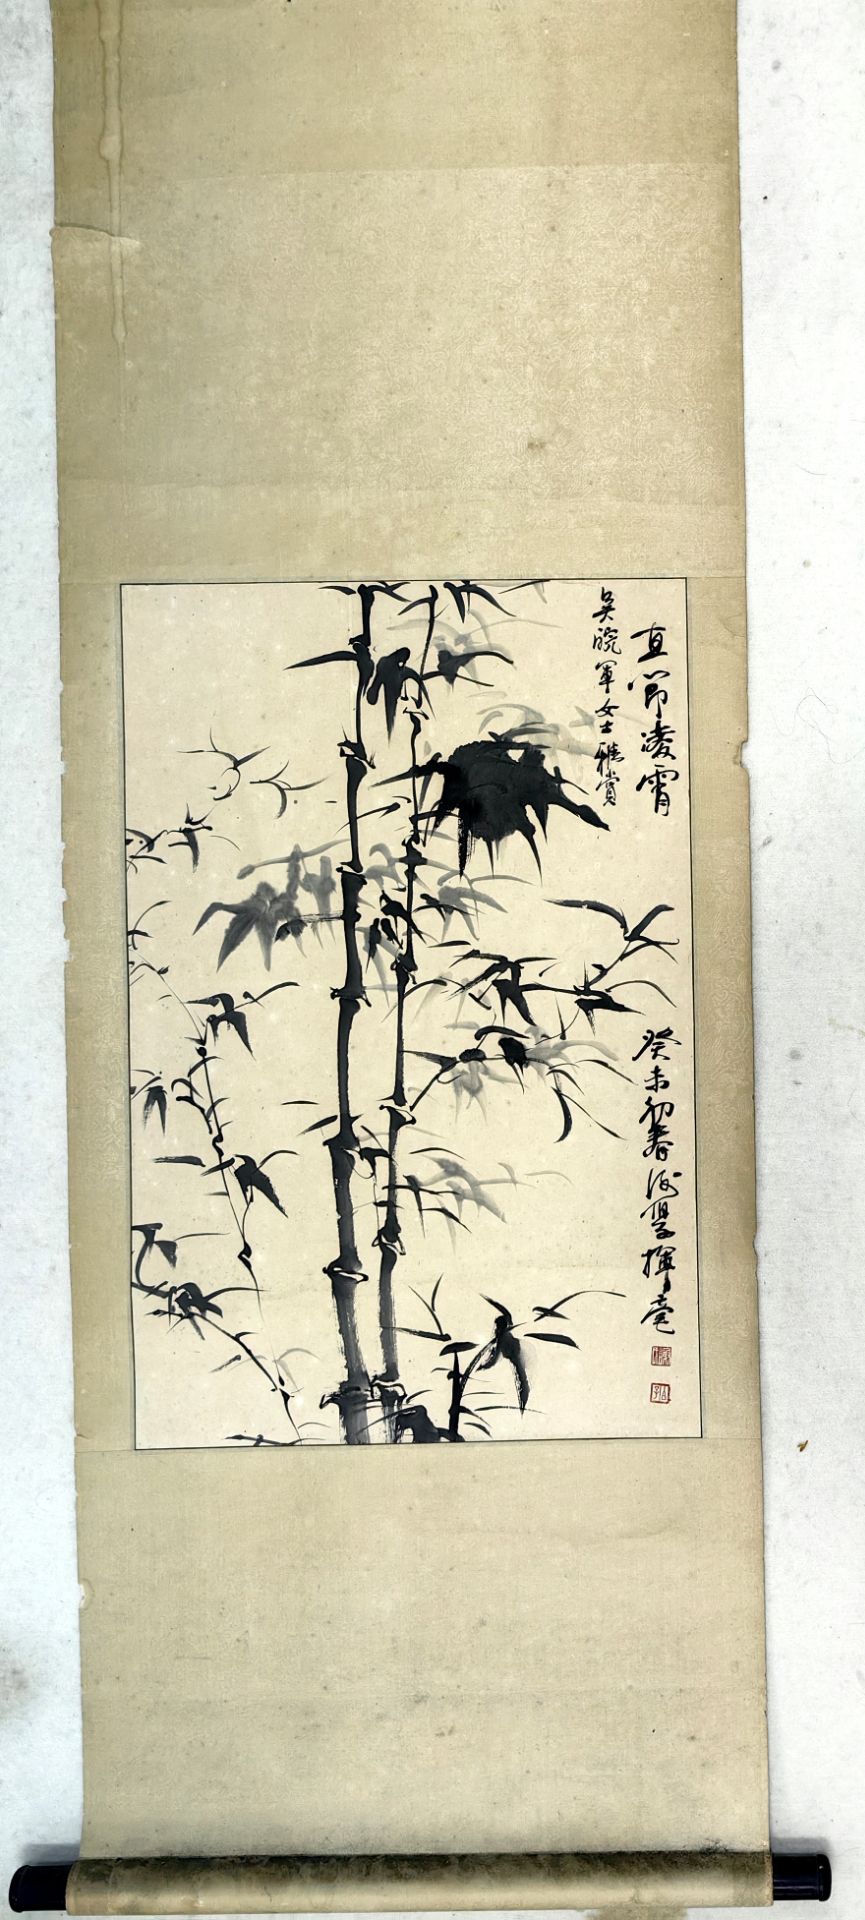 直節凌霄
吴皖軍女士雅赏
癸未初春 揮毫